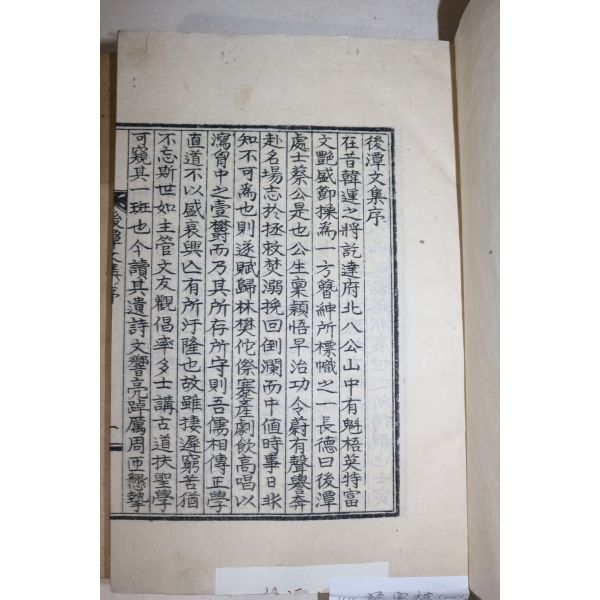 後潭文集序
在昔韓運之將訖達府北八公山中有魁梧英特富
文艷盛節操爲一方簪紳所標幟之一長德曰後潭
處士蔡公是也公生稟穎悟早治功令蔚有聲譽奔
赴名場志於拯救焚溺挽回倒瀾而中値時事日非
知不可爲也則遂賦歸林樊侘傺蹇產劇飮高唱以
瀉胷中之壹欝而乃其所存所守則吾儒相傳正學
直道不以盛衰興亾有所汙隆也故雖棲遲窮苦猶
不忘斯世如主管文友觀倡率多士講古道扶聖學
可窺其一班也今讀其遺詩文響亮踔厲周匝懇摯
後潭文集序
一